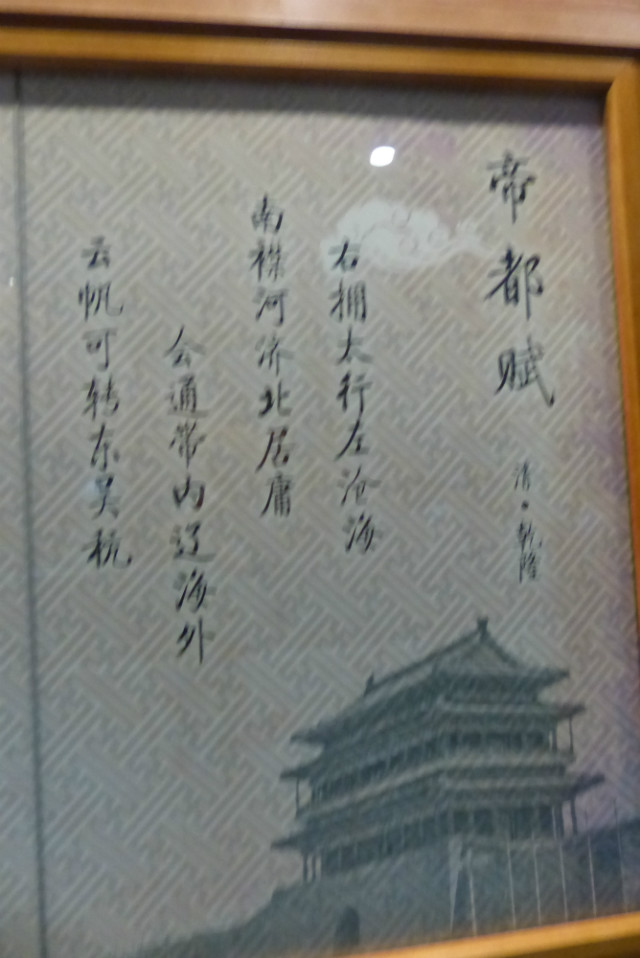 帝都赋
清·乾隆
右拥太行左沧海
南襟河济北居庸
会通带内辽海外
云帆可转东吴杭